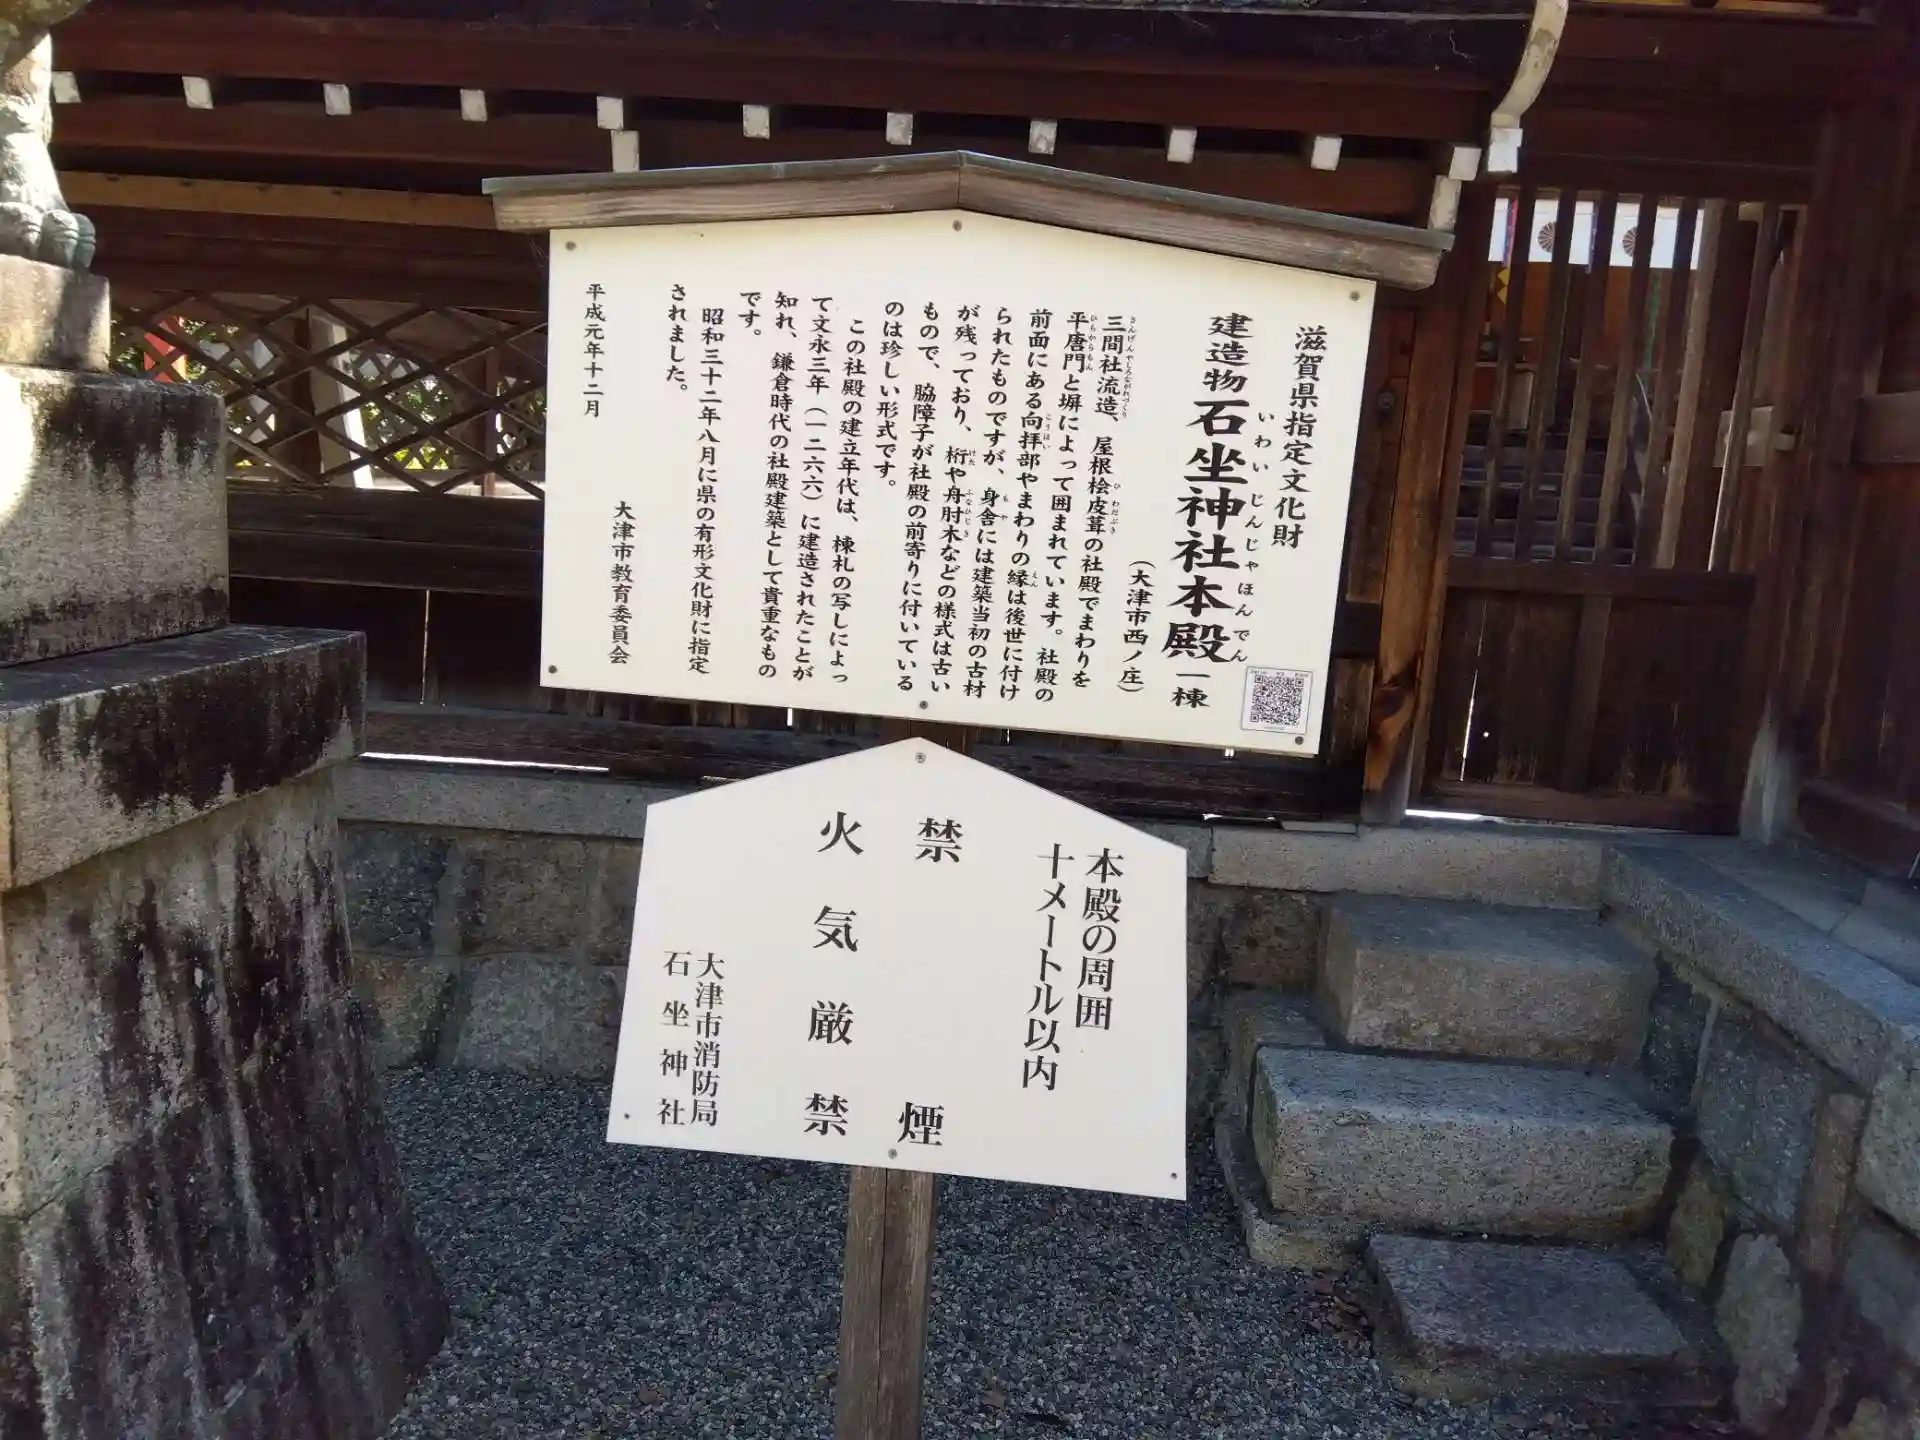 滋賀県指定文化財
建造物石坐神社本殿一棟
いわいじんじゃほんでん
（大津市西ノ庄）
三間社流造、屋根桧皮葺の社殿でまわりを
さんげんやしろながれづくり
ひわだぶき
平唐門と塀によって囲まれています。社殿の
ひらからもん
前面にある向拝部やまわりの縁は後世に付け
こうはい
えん
られたものですが、身舎には建築当初の古材
もや
が残っており、桁や舟肘木などの様式は古い
けた
ふなひじき
もので、脇障子が社殿の前寄りに付いている
のは珍しい形式です。
この社殿の建立年代は、棟札の写しによっ
て文永三年（一二六六）に建造されたことが
知れ、鎌倉時代の社殿建築として貴重なもの
です。
昭和三十二年八月に県の有形文化財に指定
されました。
大津市教育委員会
平成元年十二月
本殿の周囲
十メートル以内
禁煙
火気厳禁
大津市消防局
石坐神社